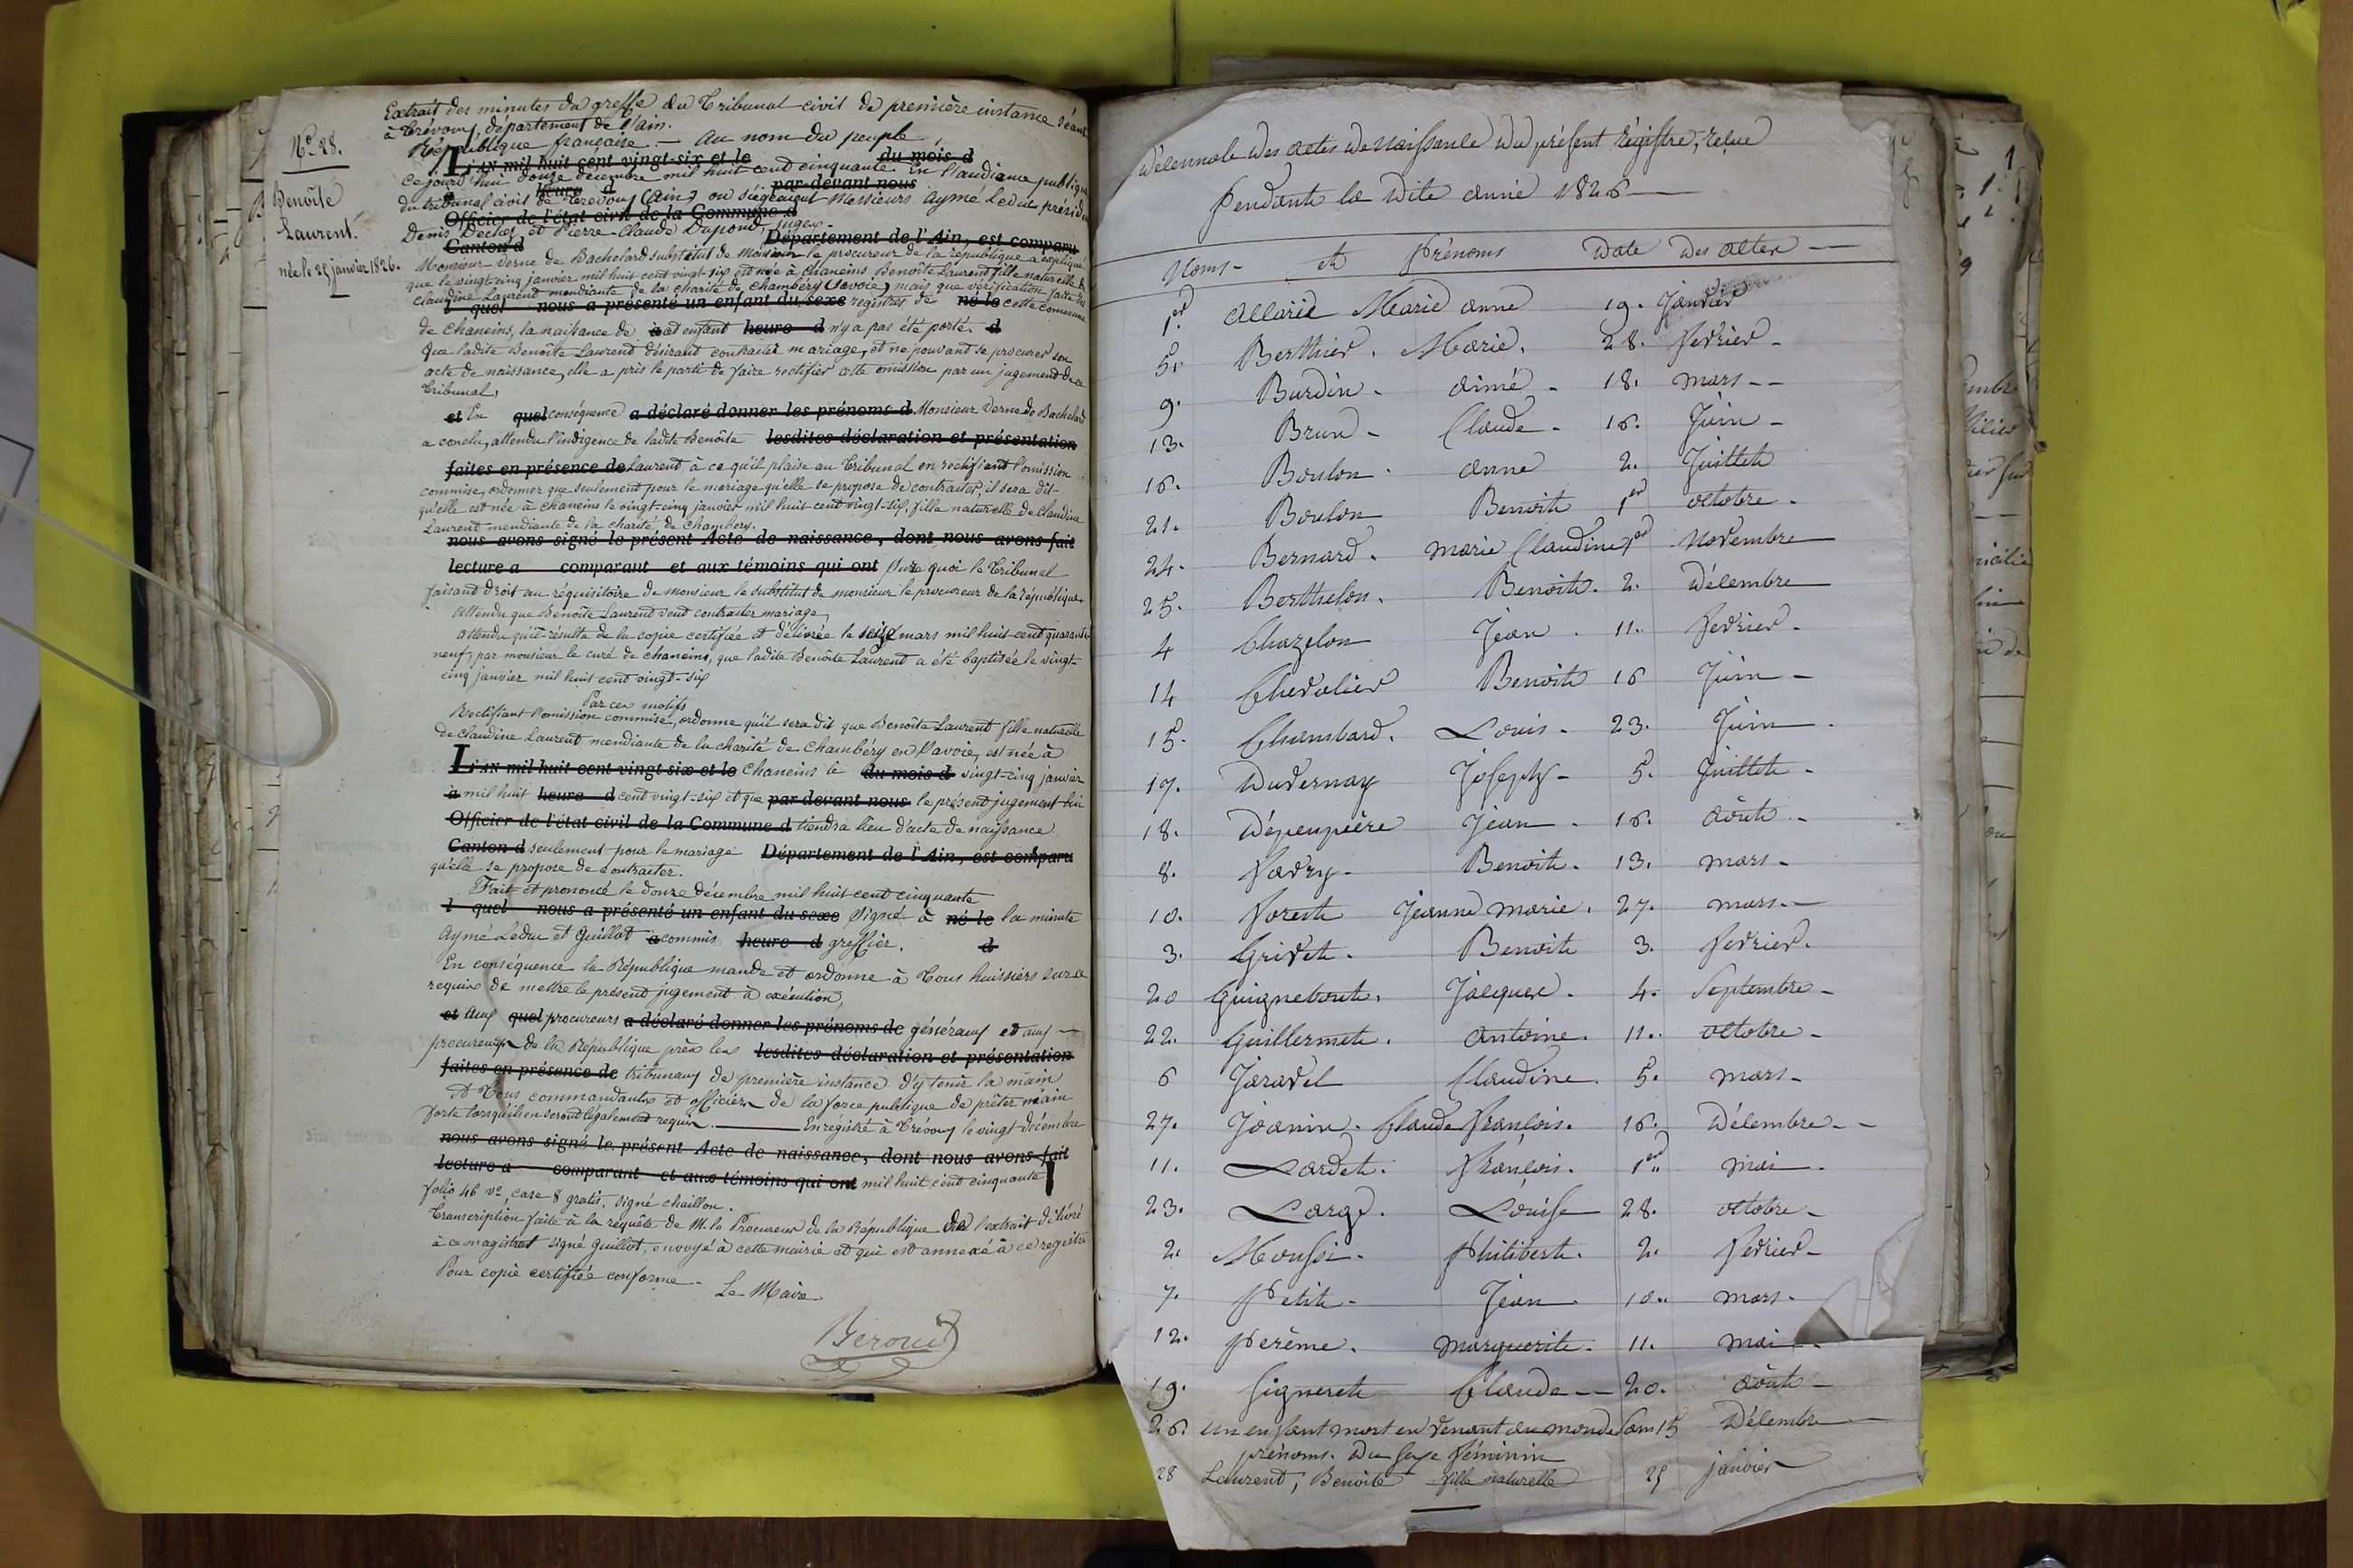 Extrait des minutes du greffe du Tribunal civil de première instance séant
à Trévoux, département de l'ain.
N.o 28.
République française. — Au nom du peuple
L'AN mil huit cent vingt-six et le du mois d
ce jourd'hui douze décembre mil huit cent cinquante. En l'audience publique
à heure d par-devant nous
du tribunal civil de Trévoux (Ain) où siégeaient Messieurs Aymé Leduc, présid
Benoîte
Laurent.
née le 25 janvier 1826.
Officier de l'état civil de la Commune d
Denis Decher et Pierre Claude Dupond, juges.
Canton d Département de l'Ain, est comparu
Monsieur Verne de Bachelard substitut de Monsieur le procureur de la république a expliqué
que le vingt-cinq janvier mil huit cent vingt-six est née à Chaneins Benoîte Laurent fille naturelle de
Claudine Laurent mendiante de la charité de Chambéry (Savoie) mais que vérification faite des
l quel nous a présenté un enfant du sexe registres de né le cette commune
de Chaneins, la naissance de à cet enfant heure d n'y a pas été porté. d
Que ladite Benoîte Laurent désirant contracter mariage, et ne pouvant se procurer son
acte de naissance, elle a pris le parti de faire rectifier cette omission par un jugement de ce
Tribunal,
et En quel conséquence a déclaré donner les prénoms d Monsieur Verne de Bachelard
a conclu, attendu l'indigence de ladite Benoîte lesdites déclaration et présentation
faites en présence de Laurent à ce qu'il plaise au Tribunal en rectifiant l'omission
commise, ordonner que seulement pour le mariage qu'elle se propose de contracter, il sera dit
qu'elle est née à Chaneins le vingt-cinq janvier mil huit cent vingt-six, fille naturelle de Claudine
Laurent mendiante de la charité de Chambéry.
nous avons signé le présent Acte de naissance, dont nous avons fait
lecture a comparant et aux témoins qui ont Sur quoi le Tribunal
faisant droit au réquisitoire de monsieur le substitut de monsieur le procureur de la république.
Attendu que Benoîte Laurent veut contracter mariage,
Attendu qu'il résulte de la copie certifiée et délivrée le seize mars mil huit cent quarante
neuf, par monsieur le curé de Chaneins, que ladite Benoîte Laurent a été baptisée le vingt-
cinq janvier mil huit cent vingt-six
Par ces motifs
Rectifiant l'omission commise, ordonne qu'il sera dit que Benoîte Laurent fille naturelle
de Claudine Laurent mendiante de la charité de Chambéry en Savoie, est née à
L'AN mil huit cent vingt-six et le Chaneins le du mois d vingt-cinq janvier
à mil huit heure d cent vingt-six et que par devant nous le présent jugement lui
Officier de l'état civil de la Commune d tiendra lieu d'acte de naissance
Canton d seulement pour le mariage Département de l'Ain, est comparu
qu'elle se propose de contracter.
Fait et prononcé le douze décembre mil huit cent cinquante
l quel nous a présenté un enfant du sexe Signé à né le la minute
Aymé Leduc et Guillot à commis heure d greffier. d
En conséquence la République mande et ordonne à Tous huissiers sur ce
requis de mettre le présent jugement à exécution,
et Aux quel procureurs a déclaré donner les prénoms de généraux et aux
procureurs de la République près les lesdites déclaration et présentation
faites en présence de tribunaux de première instance d'y tenir la main
A Tous commandants et officiers de la force publique de prêter main
forte lorsqu'ils en seront légalement requis. Enregistré à Trévoux le vingt décembre
nous avons signé le présent Acte de naissance, dont nous avons fait
lecture a comparant et aux témoins qui ont mil huit cent cinquante
folio 46 v.o, case 8 gratis, signé chaillon.
Transcription faite à la requête de M. le Procureur de la République de l'extrait délivré
à ce magistrat signé Guillot, envoyé à cette mairie et qui est annexé à ce registre
Pour copie certifiée conforme.
Le Maire
Décennale des actes de Naissance du présent Régistre, reçue
Pendante la dite année 1826
Noms - et Prénoms Date des actes
1er. Allarie Marie anne 19. Janvier
5. Berthier. Marie. 28. fevrier -
9. Burdin - aimé - 18. mars --
13. Brun - Claude - 16. Juin -
16. Boulon - anne 2. Juillete
21. Boulon Benoite 1er octobre -
24. Bernard. marie Claudine 1er Novembre
25. Berthelon. Benoite. 2. Décembre
4 Chazelon Jean. 11. fevrier -
14 Chevalier Benoite 16 Juin -
15. Chambard. Louis - 23. Juin -
17. Duvernay Joseph - 5. Juillete -
18. Dépeupière Jean - 16. aôute -
8. favry - Benoite. 13. mars -
10. forest Jeanne marie. 27. mars. -
3. Grivet. Benoite 3. fevrier.
20 Guigneboute. Jacques. 4. Septembre -
22. Guillermete. antoine. 11. octobre -
6 Jaravel Claudine. 5. mars -
27. Joanin. Claude françois. 16. Décembre - -
11. Lardet. françois. 1er mai -
23. Large. Louise 28. octobre -
2. Moussi - Philiberte. 2. fevrier -
7. Petit - Jean 10. mars -
12. Perème. Marguerite. 11. mai -
19. Signerete Claude -- 20. aôute -
26. un enfant mort en venant au monde Sans 15 Décembre
prénoms. Du Sexe féminin
28 Laurent, Benoîte fille naturelle 25 janvier